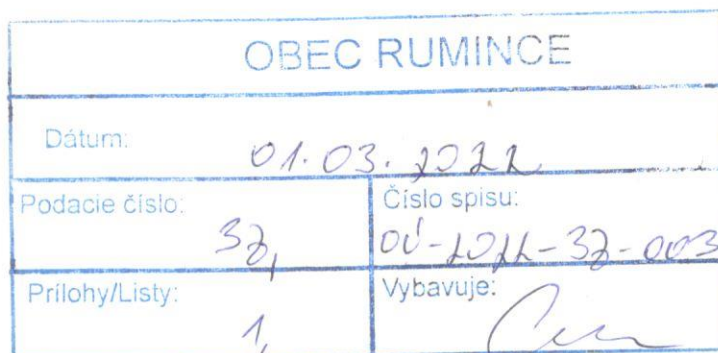 OBEC RUMINCE
Dátum:
01.03.2022
Podacie číslo:
Číslo spisu:
Prílohy/Listy:
Vybavuje:
1,